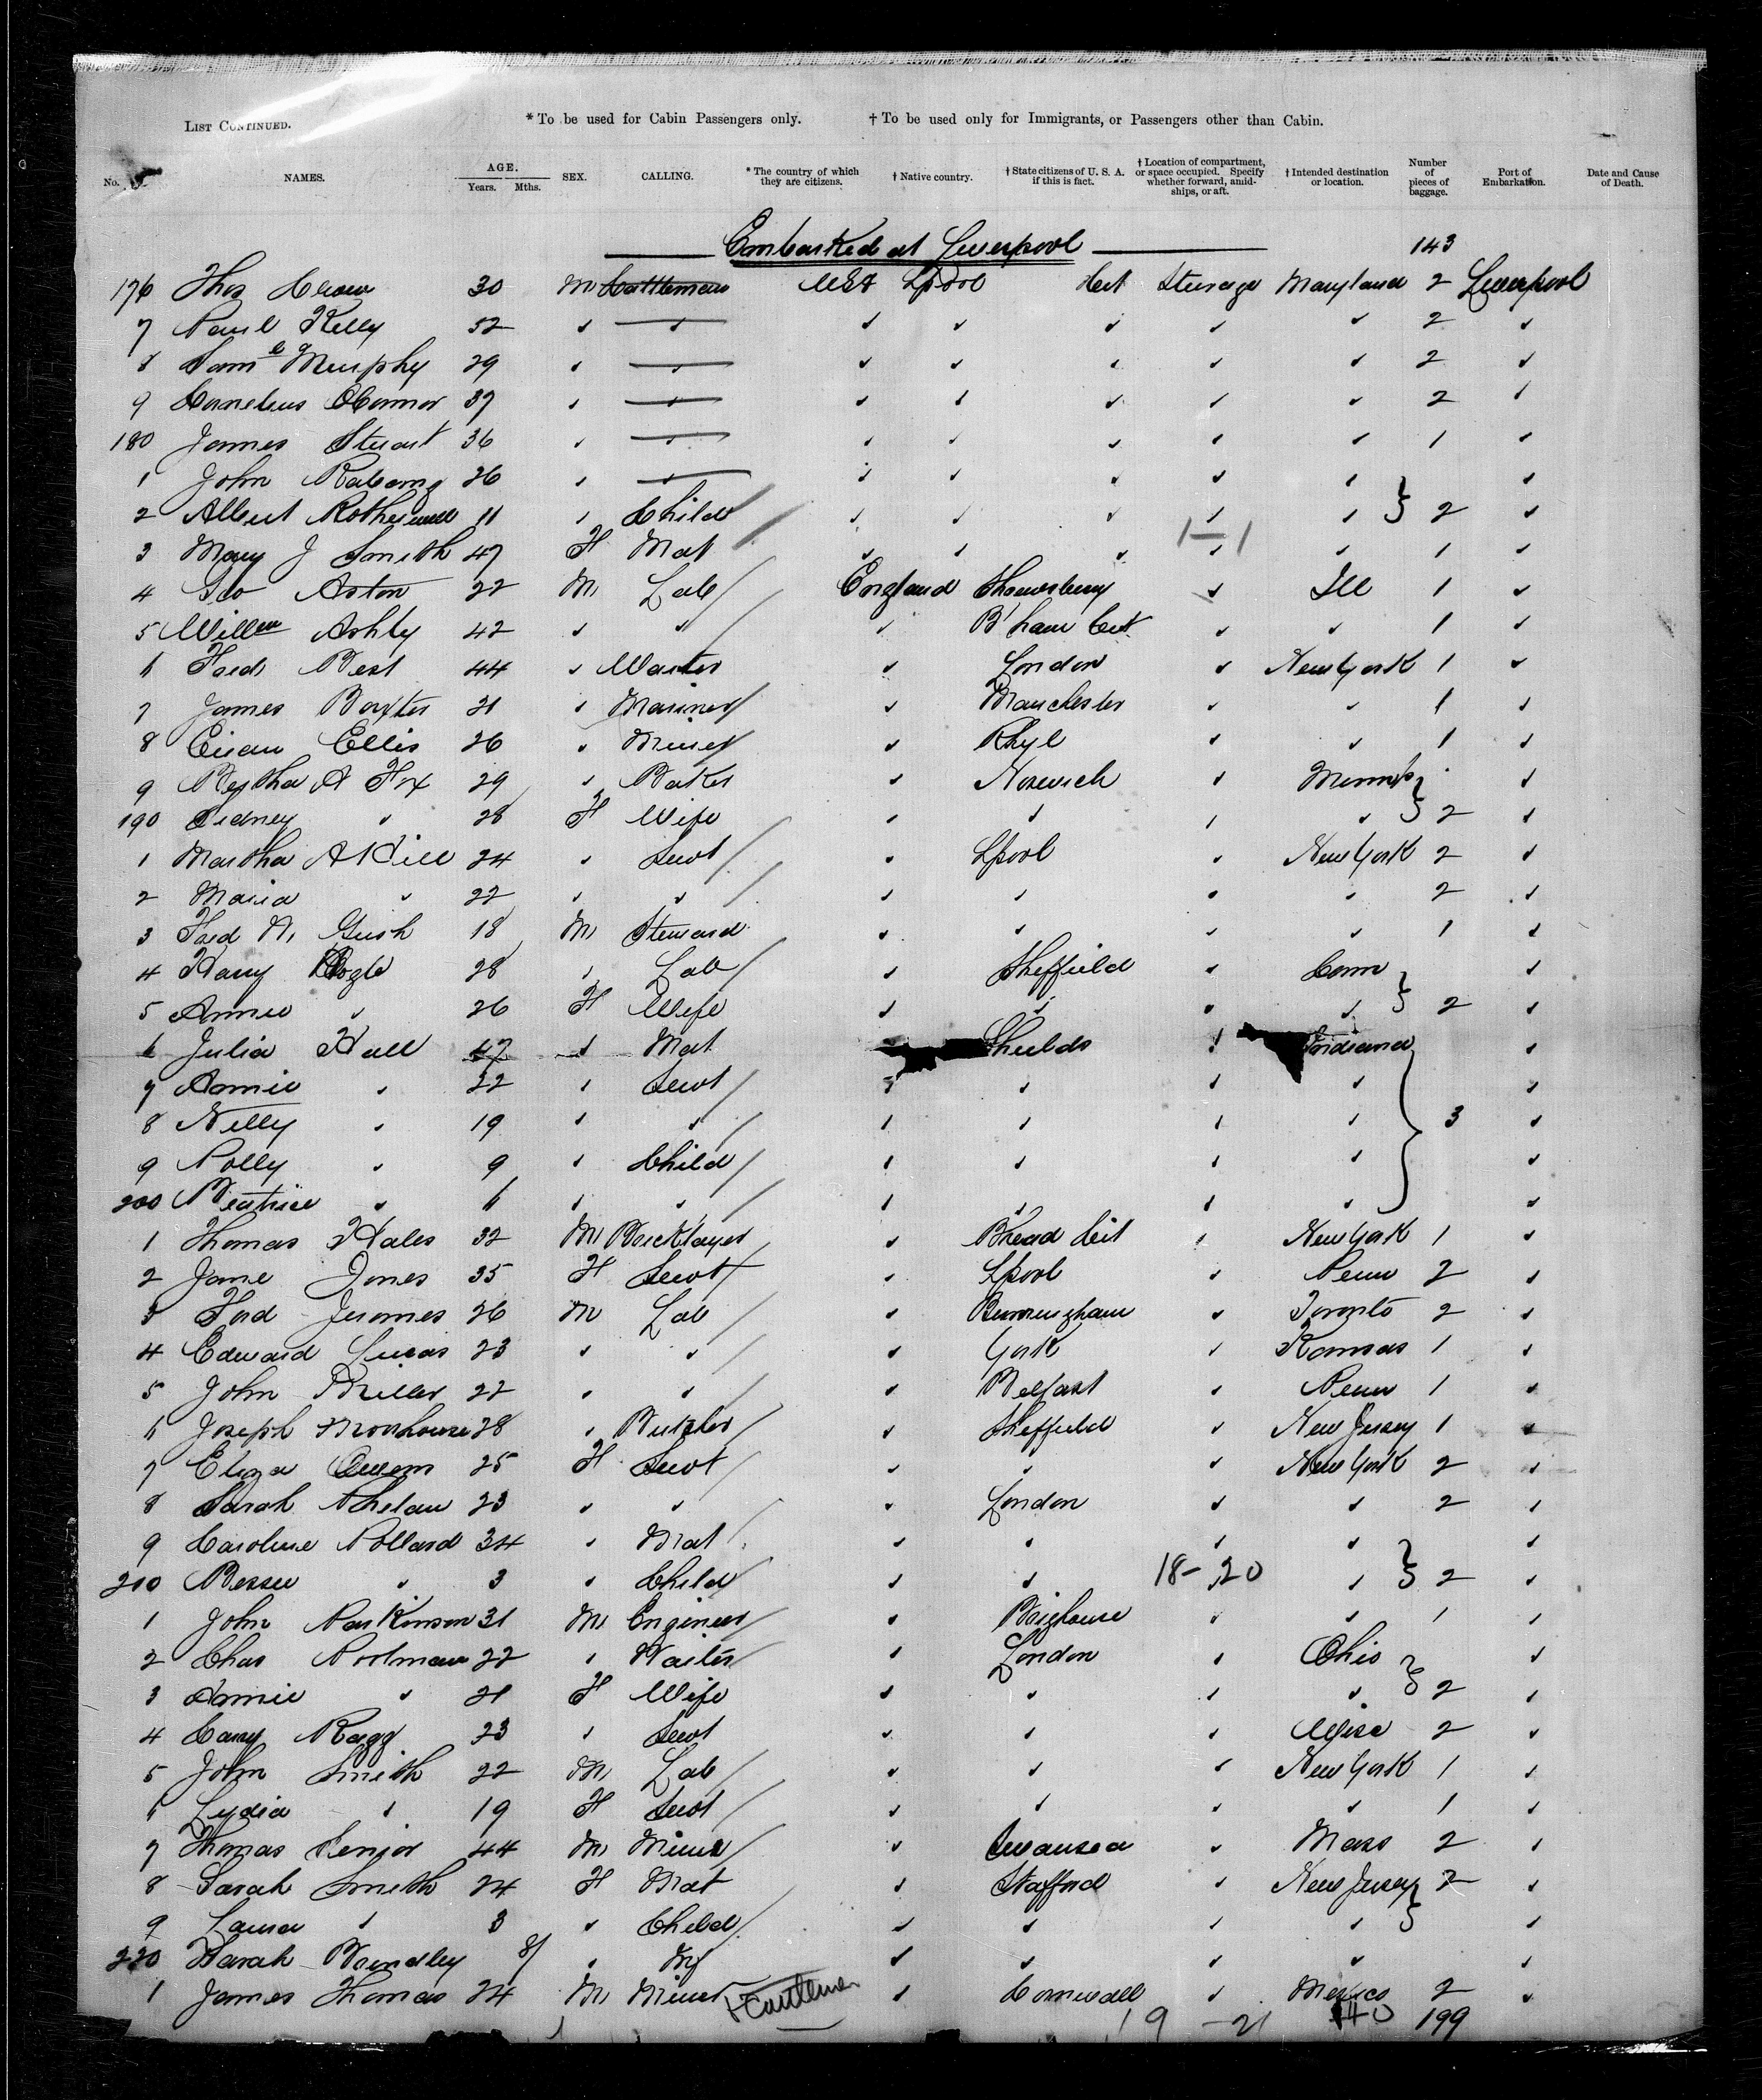 LIST CONTINUED. * To be used for Cabin Passengers only. † To be used only for Immigrants, or Passengers other than Cabin.
No. NAMES. AGE. Years. Mths. SEX. CALLING. * The country of which they are citizens. † Native country. † State citizens of U. S. A. if this is fact. † Location of compartment, or space occupied. Specify whether forward, amidships, or aft. † Intended destination or location. Number of pieces of baggage. Port of Embarkation. Date and Cause of Death.
Embarked at Liverpool 143
176 Thos 30 M Cattleman USA Lpool Cit Steerage Maryland 2 Liverpool
7 Paul Kelly 52 " " " " " " " 2 "
8 Saml Murphy 29 " " " " " " " 2 "
9 Cornelius OConnor 37 " " " " " " " 2 "
180 James Stuart 36 " " " " " " " 1 "
1 John 26 " " " " " " " "
2 Albert Rothewell 11 " Child " " " " " 2 "
3 Mary J Smith 47 F Mat " " " " " 1 " 1-1
4 Geo Aston 22 M Lab England Shrewsbury " Ill 1 "
5 Willm Ashby 42 " " " B'ham " " 1 "
6 Fred West 44 " Waiter " London " New York 1 "
7 James Baxter 21 " Mariner " Manchester " " 1 "
8 Ellis 26 " Miner " Rhyl " " 1 "
9 Bertha A Fox 29 " Baker " Norwich " "
190 Sidney " 28 F Wife " " " " 2 "
1 Martha A Hill 24 " Servt " Lpool " New York 2 "
2 Maria " 22 " " " " " " 2 "
3 Fred W Gush 18 M Steward " " " " 1 "
4 Harry 28 " Lab " Sheffield " Conn "
5 Annie " 26 F Wife " " " " 2 "
6 Julia Hall 47 " Mat Shields " Indiana "
7 Annie " 22 " Servt " " " " "
8 Nelly " 19 " " " " " " 3 "
9 Polly " 9 " Child " " " " "
200 Beatrice " 6 " " " " " " "
1 Thomas Hales 32 M Bricklayer " " New York 1 "
2 Jane Jones 35 F Servt " Lpool " Penn 2 "
3 Fred Jeromes 26 M Lab " Birmingham " Toronto 2 "
4 Edward Lucas 23 " " " York " Kansas 1 "
5 John Miller 22 " " " Belfast " Penn 1 "
6 Joseph 28 " Butcher " Sheffield " New Jersey 1 "
7 Eliza Owens 25 F Servt " " " New York 2 "
8 Sarah Phelan 23 " " " London " " 2 "
9 Caroline Pollard 34 " Mat " " " " "
210 Bessie " 3 " Child " " 18-20 " 2 "
1 John Parkinson 31 M Engineer " Brighouse " " 1 "
2 Chas Poolman 22 " Waiter " London " Ohio "
3 Annie " 21 F Wife " " " " 2 "
4 Ragg 23 " Servt " " " Wisc 2 "
5 John Smith 22 M Lab " " " New York 1 "
6 Lydia " 19 F Servt " " " " 1 "
7 Thomas Senior 44 M Miner " Swansea " Mass 2 "
8 Sarah Smith 24 F Mat " Stafford " New Jersey 2 "
9 Laura " 3 " Child " " " " "
220 Sarah Brindley 8 " " " " " "
1 James Thomas 24 M Miner " Cornwall " Mexico 2 "
19 -21 140 199